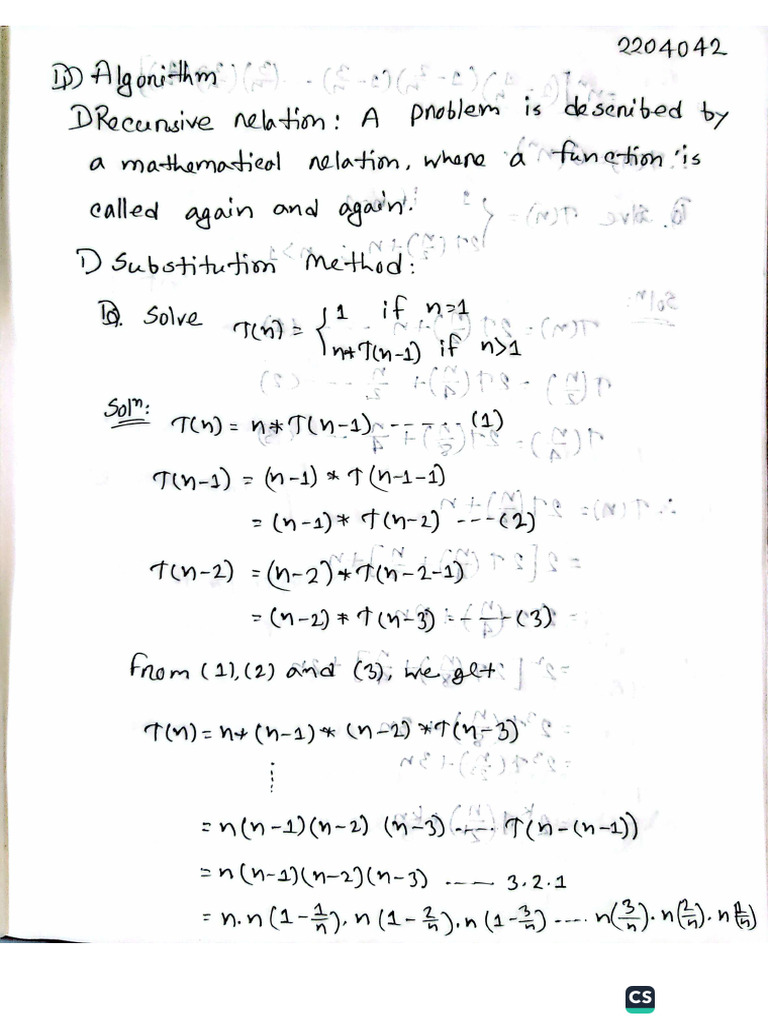 2204042
D) Algorithm
D Recursive relation: A problem is described by
a mathematical relation, where a function is
called again and again.
D Substitution Method:
Q. Solve T(n) = { 1 if n=1
n*T(n-1) if n>1
Solⁿ: T(n) = n*T(n-1) ------- (1)
T(n-1) = (n-1) * T(n-1-1)
= (n-1) * T(n-2) ---(2)
T(n-2) = (n-2)*T(n-2-1)
= (n-2) * T(n-3) ----(3)
From (1), (2) and (3), we get:
T(n) = n*(n-1)* (n-2) *T(n-3)
⋮
= n(n-1)(n-2) (n-3) ----- T(n-(n-1))
= n(n-1)(n-2)(n-3) ----- 3.2.1
= n.n(1-1/n).n(1-2/n).n(1-3/n) ---- n(3/n).n(2/n).n(1/n)
CS